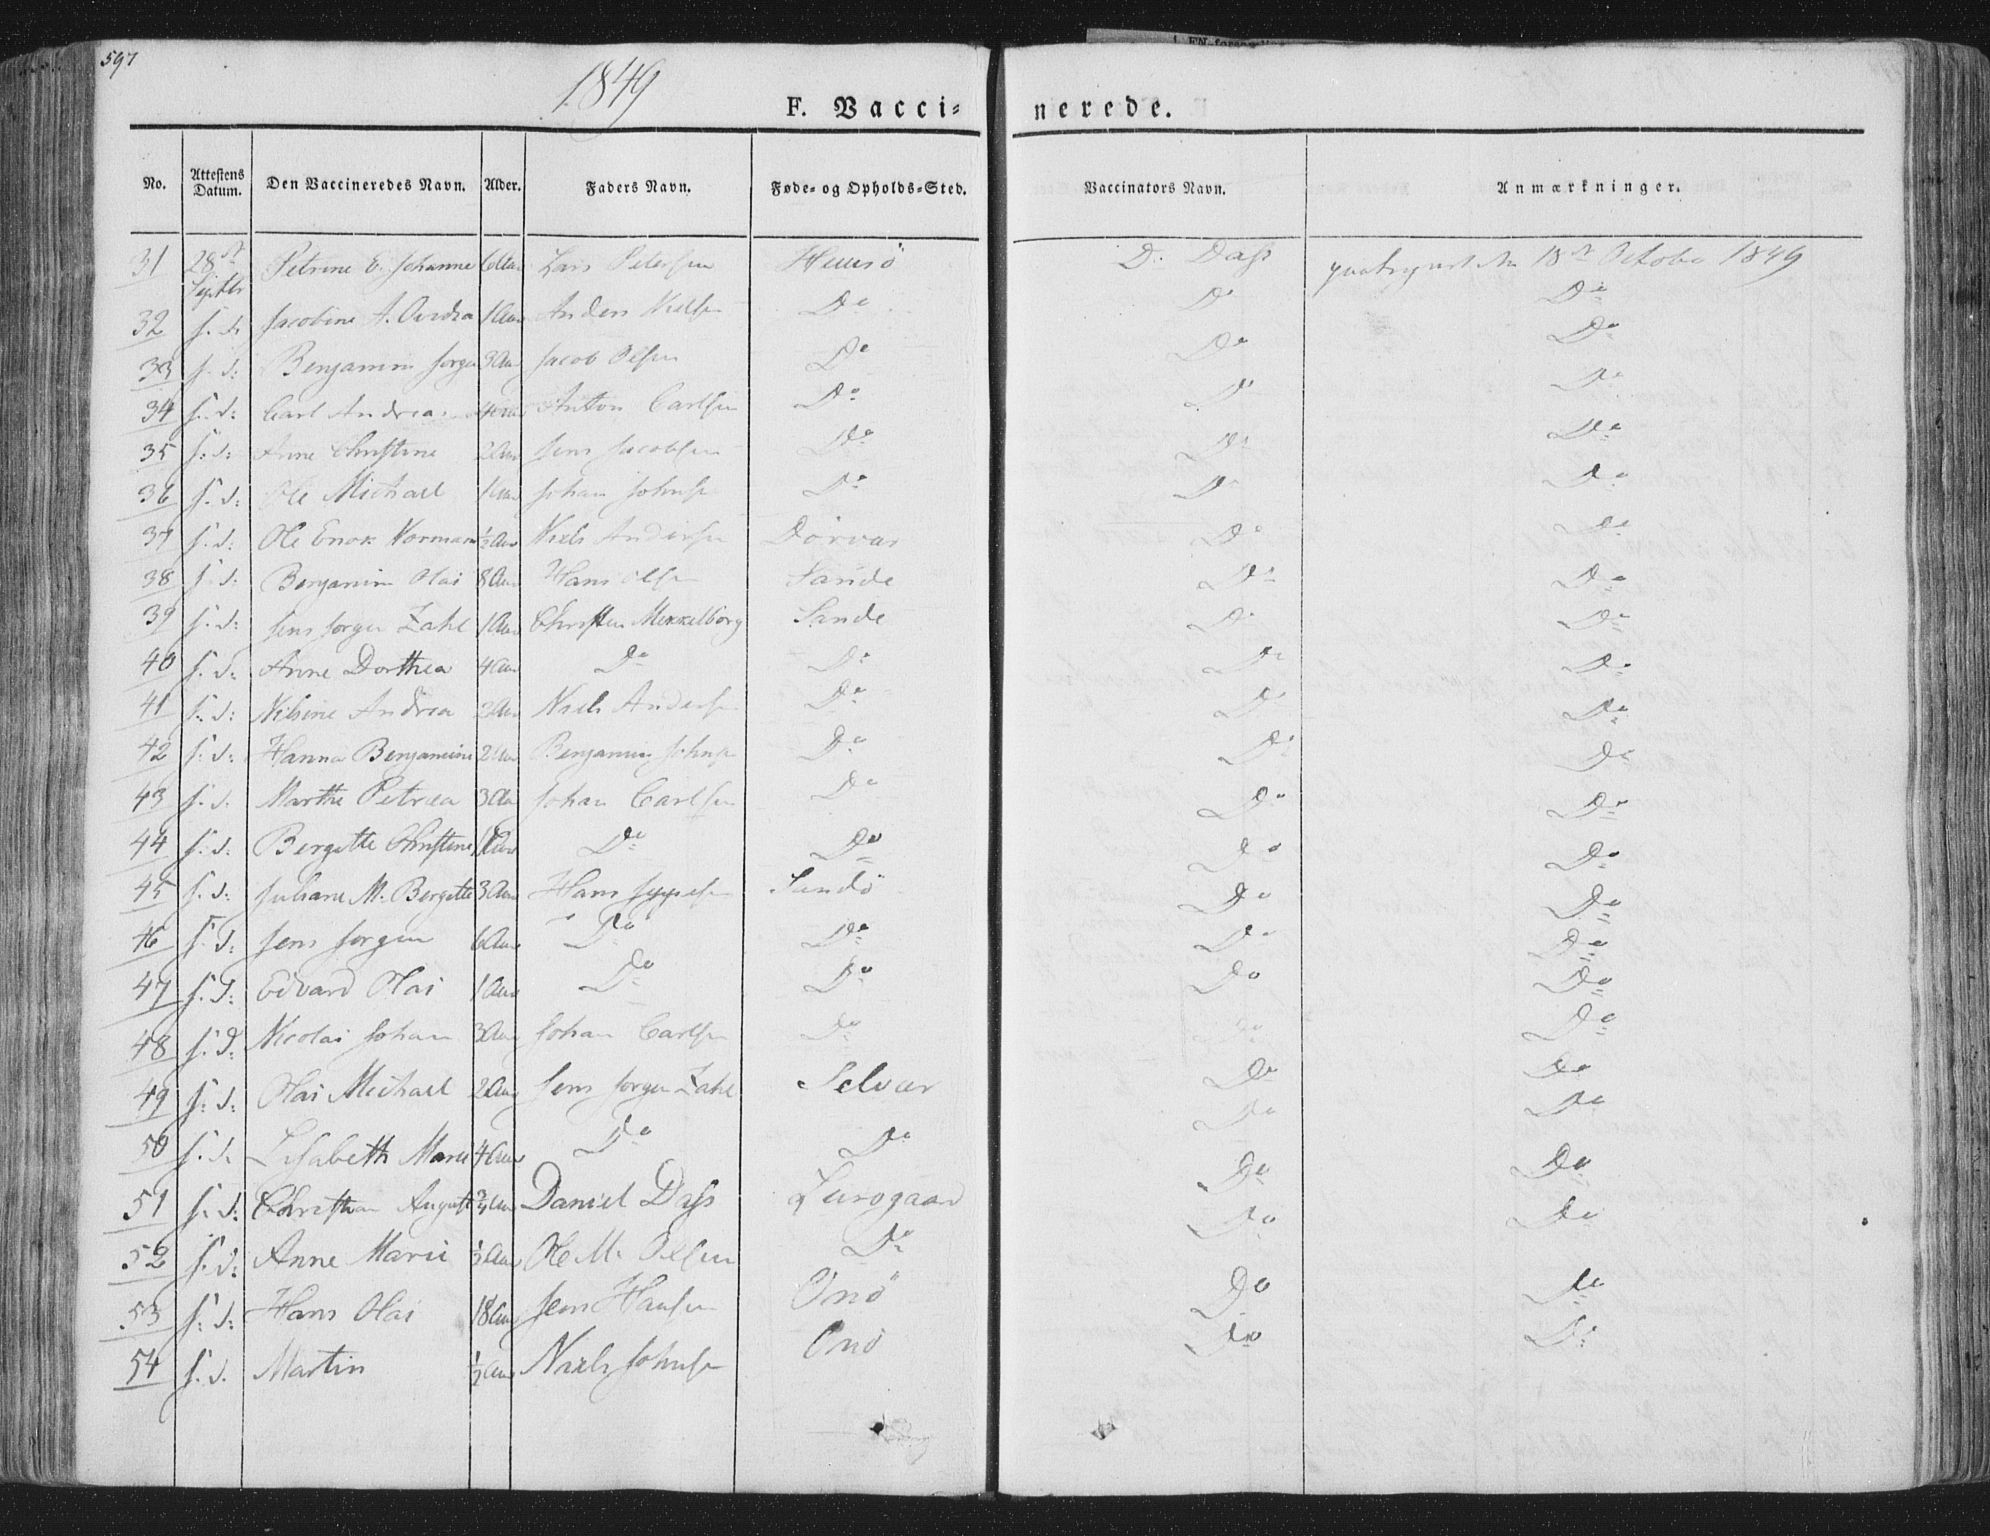 597
1849
F. Vacci- nerede.
No. Attestens Datum. Den Vaccineredes Navn. Alder. Faders Navn. Føde- og Opholds-Sted. Vaccinators Navn. Anmærkninger.
31 28de Septbr Petrine E. Johanne 6 Aar Lars Petersen D. Dass 18de October 1849
32 s. d. Jacobine A. Andrea 1 Aar Anders Nielsen Do Do Do
33 s. d: Benjamin Jørgen 3 Aar Jacob Olsen Do Do Do
34 s. d: Carl Andreas Anton Carlsen Do Do Do
35 s: d: Anne Christine 2 Aar Jens Jacobsen Do Do Do
36 s. d: Ole Michael 1 Aar Johan Johnsen Do Do Do
37 s. d: Ole Enok Norman ½ Aar Niels Andersen Dørvær Do Do
38 s. d: Benjamin Olai 8 Aar Hans Olsen Sande Do Do
39 s. d: Jens Jørgen Zahl 1 Aar Christen Mekkelborg Sande Do Do
40 s: d: Anne Dorthea 4 Aar Do Do Do Do
41 s. d: Nilsine Andrea 2 Aar Niels Andersen Do Do Do
42 s. d: Hanna Benjamine 2 Aar Benjamin Johnsen Do Do Do
43 s. d. Marthe Petrea 3 Aar Johan Carlsen Do Do Do
44 s. d. Bergitte Christine Do Do Do Do
45 s. d: Juliane M. Bergitte 3 Aar Hans Jeppesen Sandø Do Do
46 s. d: Jens Jørgen 6 Aar Do Do Do Do
47 s. d: Edvard Olai 1 Aar Do Do Do Do
48 s. d: Nicolai Johan 3 Aar Johan Carlsen Do Do Do
49 s: d: Olai Michael 2 Aar Jens Jørgen Zahl Selvær Do Do
50 s. d. Lisabeth Marie 4 Aar Do Do Do Do
51 s. d: Christian August ¾ Aar Daniel Dass Lurøgaard Do Do
52 s. d: Anne Marie ½ Aar Ole M. Olsen Do Do Do
53 s: d: Hans Olai 18 Aar Jens Hansen Onø Do Do
54 s. d. Martin ½ Aar Niels Johnsen Onø Do Do